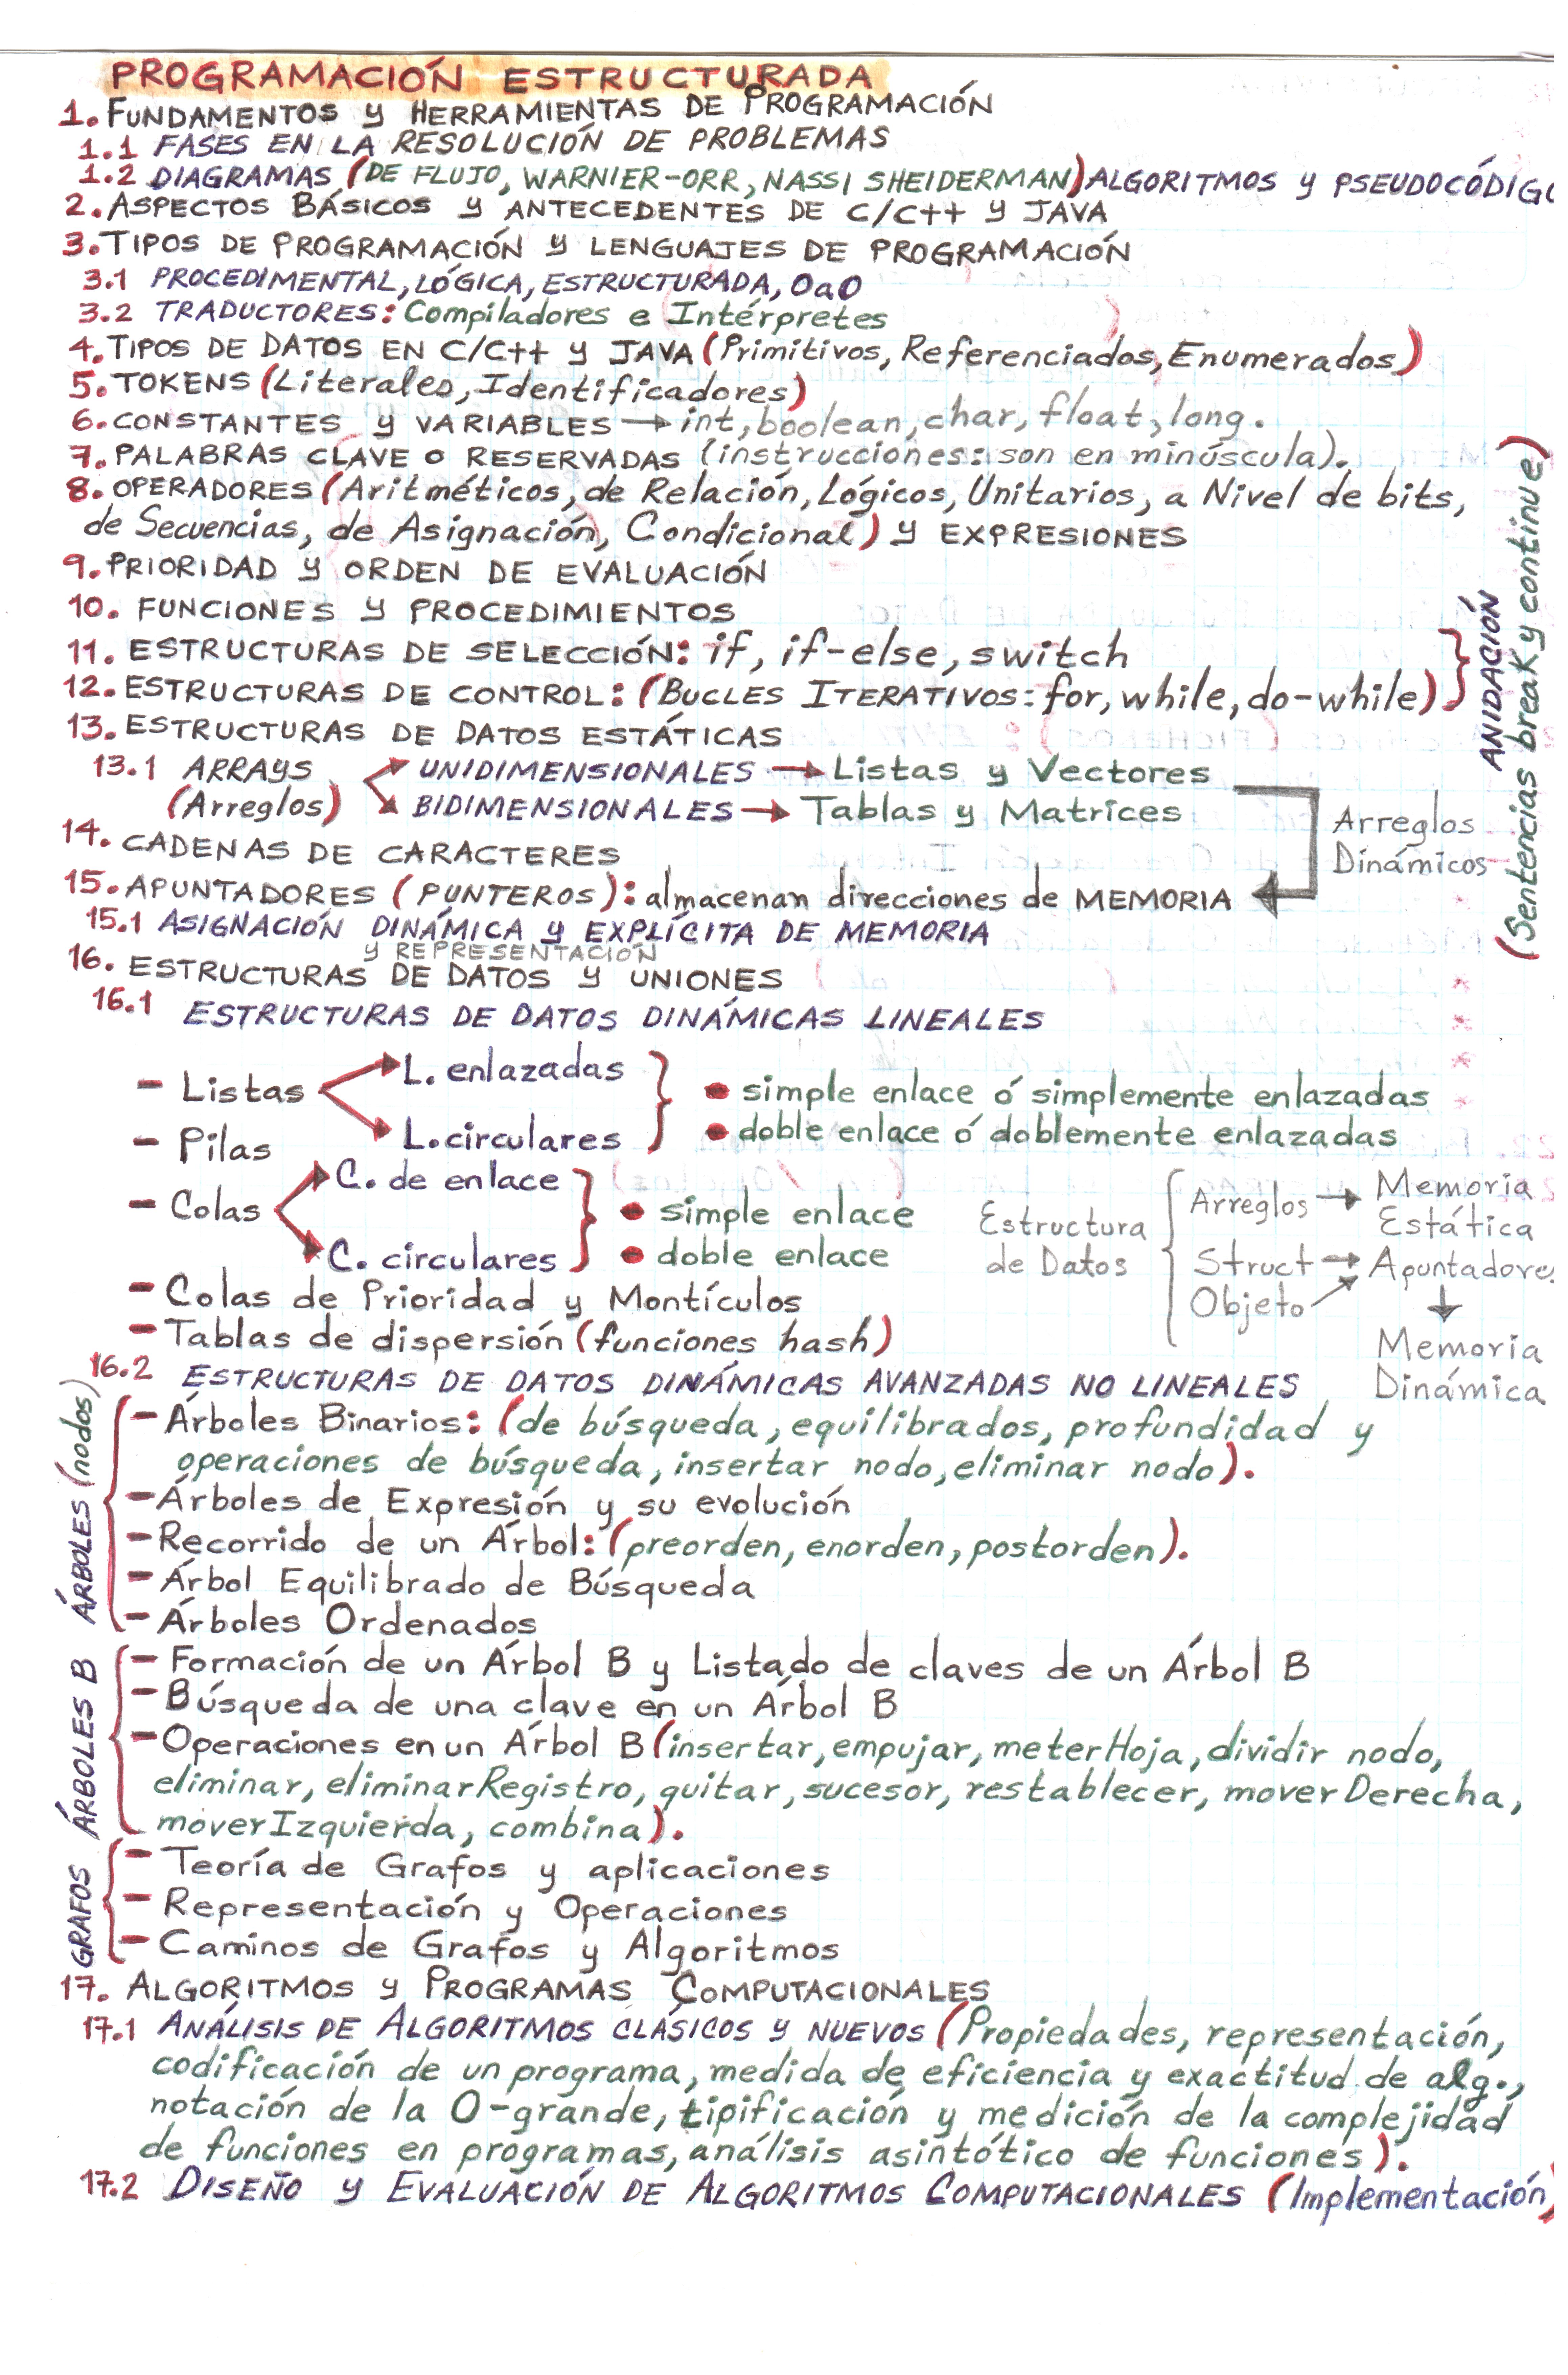 PROGRAMACIÓN ESTRUCTURADA
1. FUNDAMENTOS y HERRAMIENTAS DE PROGRAMACIÓN
1.1 FASES EN LA RESOLUCIÓN DE PROBLEMAS
1.2 DIAGRAMAS (DE FLUJO, WARNIER-ORR, NASSI SHEIDERMAN) ALGORITMOS y PSEUDOCÓDIGO
2. ASPECTOS BÁSICOS y ANTECEDENTES DE C/C++ y JAVA
3. TIPOS DE PROGRAMACIÓN y LENGUAJES DE PROGRAMACIÓN
3.1 PROCEDIMENTAL, LÓGICA, ESTRUCTURADA, OaO
3.2 TRADUCTORES: Compiladores e Intérpretes
4. TIPOS DE DATOS EN C/C++ y JAVA (Primitivos, Referenciados, Enumerados)
5. TOKENS (Literales, Identificadores)
6. CONSTANTES y VARIABLES → int, boolean, char, float, long.
7. PALABRAS CLAVE o RESERVADAS (instrucciones: son en minúscula).
8. OPERADORES (Aritméticos, de Relación, Lógicos, Unitarios, a Nivel de bits,
de Secuencias, de Asignación, Condicional) y EXPRESIONES
9. PRIORIDAD y ORDEN DE EVALUACIÓN
10. FUNCIONES y PROCEDIMIENTOS
11. ESTRUCTURAS DE SELECCIÓN: if, if-else, switch
12. ESTRUCTURAS DE CONTROL: (BUCLES ITERATIVOS: for, while, do-while)
ANIDACIÓN
(Sentencias break y continue)
13. ESTRUCTURAS DE DATOS ESTÁTICAS
13.1 ARRAYS UNIDIMENSIONALES → Listas y Vectores
(Arreglos) BIDIMENSIONALES → Tablas y Matrices
Arreglos
Dinámicos
14. CADENAS DE CARACTERES
15. APUNTADORES (PUNTEROS): almacenan direcciones de MEMORIA
15.1 ASIGNACIÓN DINÁMICA y EXPLÍCITA DE MEMORIA
y REPRESENTACIÓN
16. ESTRUCTURAS DE DATOS y UNIONES
16.1 ESTRUCTURAS DE DATOS DINÁMICAS LINEALES
- Listas
L. enlazadas
L. circulares
• simple enlace ó simplemente enlazadas
• doble enlace ó doblemente enlazadas
- Pilas
- Colas
C. de enlace
C. circulares
• simple enlace
• doble enlace
Estructura
de Datos
Arreglos → Memoria
Estática
Struct → Apuntadores
Objeto
Memoria
Dinámica
- Colas de Prioridad y Montículos
- Tablas de dispersión (funciones hash)
16.2 ESTRUCTURAS DE DATOS DINÁMICAS AVANZADAS NO LINEALES
ÁRBOLES (nodos)
- Árboles Binarios: (de búsqueda, equilibrados, profundidad y
operaciones de búsqueda, insertar nodo, eliminar nodo).
- Árboles de Expresión y su evolución
- Recorrido de un Árbol: (preorden, enorden, postorden).
- Árbol Equilibrado de Búsqueda
- Árboles Ordenados
ÁRBOLES B
- Formación de un Árbol B y Listado de claves de un Árbol B
- Búsqueda de una clave en un Árbol B
- Operaciones en un Árbol B (insertar, empujar, meterHoja, dividir nodo,
eliminar, eliminarRegistro, quitar, sucesor, restablecer, moverDerecha,
moverIzquierda, combina).
GRAFOS
- Teoría de Grafos y aplicaciones
- Representación y Operaciones
- Caminos de Grafos y Algoritmos
17. ALGORITMOS y PROGRAMAS COMPUTACIONALES
17.1 ANÁLISIS DE ALGORITMOS CLÁSICOS y NUEVOS (Propiedades, representación,
codificación de un programa, medida de eficiencia y exactitud de alg.,
notación de la O-grande, tipificación y medición de la complejidad
de funciones en programas, análisis asintótico de funciones).
17.2 DISEÑO y EVALUACIÓN DE ALGORITMOS COMPUTACIONALES (Implementación)